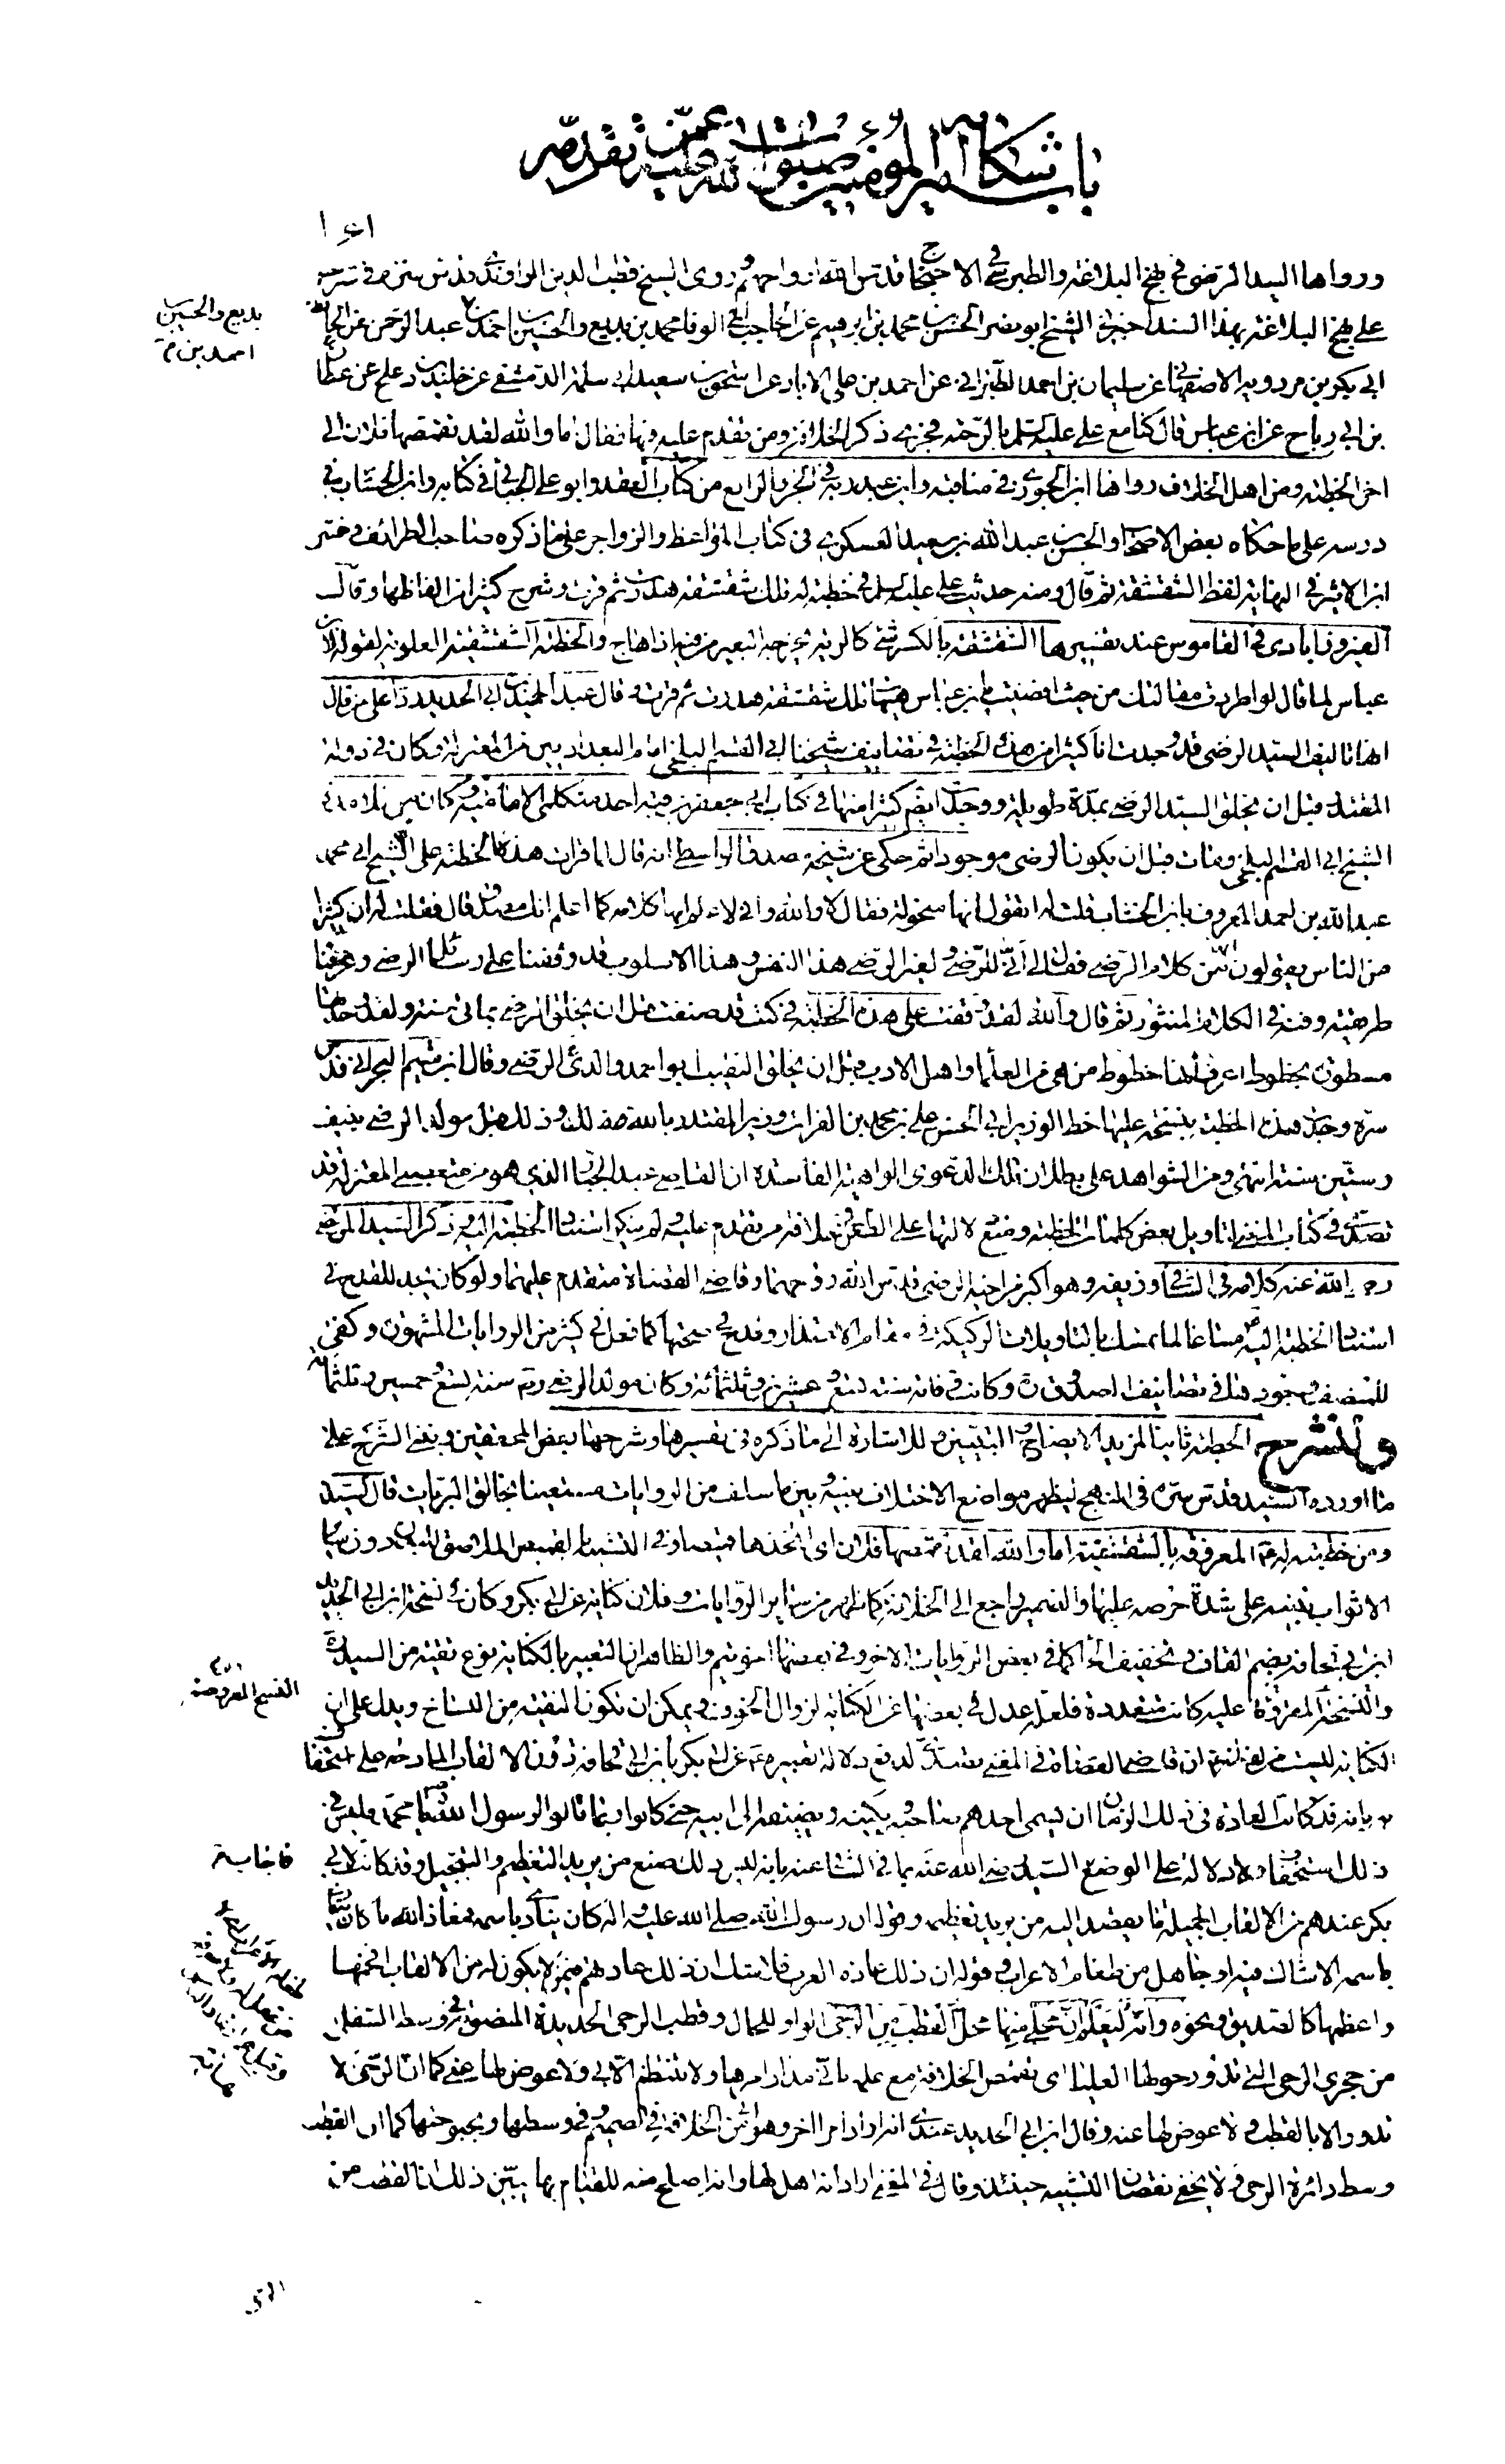 باب شكاية امير المؤمنين صلوات الله عليه عمن تقدمه
ورواها السيد الرضي في نهج البلاغة والطبرسي في الاحتجاج قدس الله ارواحهم وروى الشيخ قطب الدين الراوندي قدس سره في شرحه
على نهج البلاغة بهذا السند اخبرني الشيخ ابو نصر الحسن بن محمد بن ابرهيم عن الحاجب ابي الوفا محمد بن بديع والحسين بن احمد بن عبد الرحمن عن الحافظ
ابي بكر بن مردويه الاصفهاني عن سليمان بن احمد الطبراني عن احمد بن علي الابار عن اسحق بن سعيد ابي سلمة الدمشقي عن خليد بن دعلج عن عطا
بن ابي رباح عن ابن عباس قال كنا مع علي عليه السلم بالرحبة فجرى ذكر الخلافة ومن تقدم عليه فيها فقال اما والله لقد تقمصها فلان الى
اخر الخطبة ومن اهل الخلاف رواها ابن الجوزي في مناقبه وابن عبد ربه في الجزء الرابع من كتاب العقد وابو علي الجبائي في كتابه وابن الخشاب في
درسه على ما حكاه بعض الاصحاب والحسن بن عبد الله بن سعيد العسكري في كتاب المواعظ والزواجر على ما ذكره صاحب الطرائف وفسر
ابن الاثير في النهاية لفظ الشقشقة ثم قال ومنه حديث علي عليه السلم في خطبة له تلك شقشقة هدرت ثم قرت وشرح كثيرا من الفاظها وقال
الفيروزابادي في القاموس عند تفسيرها الشقشقة بالكسر شئ كالرية يخرجه البعير من فيه اذا هاج والخطبة الشقشقية العلوية لقوله لابن
عباس لما قال لو اطردت مقالتك من حيث افضيت يا بن عباس هيهات تلك شقشقة هدرت ثم قرت وقال عبد الحميد بن ابي الحديد ردا على من قال
انها تاليف السيد الرضي قد وجدت انا كثيرا من هذه الخطبة في تصانيف شيخنا ابي القسم البلخي امام البغداديين من المعتزلة وكان في دولة
المقتدر قبل ان يخلق السيد الرضي بمدة طويلة ووجدت ايضا كثيرا منها في كتاب ابي جعفر بن قبة احد متكلمي الامامية وكان من تلامذة
الشيخ ابي القسم البلخي ومات قبل ان يكون الرضي موجودا ثم حكى عن شيخه مصدق الواسطي انه قال لما قرات هذه الخطبة على الشيخ ابي محمد
عبد الله بن احمد المعروف بابن الخشاب قلت له اتقول انها منحولة فقال لا والله واني لاعلم انها كلامه كما اعلم انك مصدق قال فقلت له ان كثيرا
من الناس يقولون انها من كلام الرضي فقال لي انى للرضي ولغير الرضي هذا النفس وهذا الاسلوب قد وقفنا على رسائل الرضي وعرفنا
طريقته وفنه في الكلام المنثور ثم قال والله لقد وقفت على هذه الخطبة في كتب قد صنفت قبل ان يخلق الرضي بمائتي سنة ولقد وجدتها
مسطورة بخطوط اعرف انها خطوط من هي من العلماء واهل الادب قبل ان يخلق النقيب ابو احمد والد الرضي وقال ابن ميثم البحراني قدس
سره وجدت هذه الخطبة بنسخة عليها خط الوزير ابي الحسن علي بن محمد بن الفرات وزير المقتدر بالله وذلك قبل مولد الرضي بنيف
وستين سنة انتهى ومن الشواهد على بطلان تلك الدعوى الواهية الفاسدة ان القاضي عبد الجبار الذي هو من متعصبي المعتزلة قد
تصدى في كتاب المغني لتاويل بعض كلمات الخطبة ومنع دلالتها على الطعن في خلافة من تقدم عليه ولم ينكر استناد الخطبة اليه وذكر السيد المرتضى
رضي الله عنه كلامه في الشافي وزيفه وهو اكبر من اخيه الرضي قدس الله روحهما وقاضي القضاة متقدم عليهما ولو كان يجد للقدح في
استناد الخطبة اليه مساغا لما تمسك بالتاويلات الركيكة في مقام الاعتذار وقدح في صحتها كما فعل في كثير من الروايات المشهورة وكفى
للمنصف وجودها في تصانيف الصدوق ره وكانت وفاته سنة تسع وعشرين وثلثمائة وكان مولد الرضي ره سنة تسع وخمسين وثلثمائة
ولنشرح الخطبة ثانيا لمزيد الايضاح والتبيين وللاشارة الى ما ذكره في تفسيرها وشرحها بعض المحققين ونبني الشرح على
ما اورده السيد قدس سره في النهج ليظهر مواضع الاختلاف بينه وبين ما سلف من الروايات مستعينا بخالق البريات قال السيد
ومن خطبة له ع المعروفة بالشقشقية اما والله لقد تقمصها فلان اي اتخذها قميصا وفي التشبيه بالقميص الملاصق للبدن دون سائر
الاثواب تنبيه على شدة حرصه عليها والضمير راجع الى الخلافة كما ظهر من سائر الروايات وفلان كناية عن ابي بكر وكان في نسخة ابن ابي الحديد
ابن ابي قحافة بضم القاف وتخفيف الحاء كما في بعض الروايات الاخر وفي بعضها اخو تيم والظاهر ان التعبير بالكناية نوع تقية من السيد ره
والنسخة المقروة عليه كانت متعددة فلعله عدل في بعضها عن الكناية لزوال الخوف ويمكن ان تكون التقية من النساخ ويدل على ان
الكناية ليست من لفظه ع ان قاضي القضاة في المغني تصدى لدفع دلالة تعبيره ع عن ابي بكر بابن ابي قحافة دون الالقاب المادحة على استخفاف
به بانه قد كانت العادة في ذلك الزمان ان يسمي احدهم صاحبه ويكنيه ويضيفه الى ابيه حتى كانوا ربما قالوا لرسول الله ص يا محمد فليس في
ذلك استخفاف ولا دلالة على الوضع السيد رضي الله عنه بما في الشافي عنه بانه ليس ذلك صنع من يريد التعظيم والتبجيل وقد كانت لابي
بكر عندهم من الالقاب الجميلة ما يقصد اليه من يريد تعظيمه وقوله ان رسول الله صلى الله عليه واله كان ينادى باسمه فمعاذ الله ما كان ينادي
باسمه الا شاك فيه او جاهل من طغام الاعراب وقوله ان ذلك عادة العرب فلا شك ان ذلك عادتهم فيمن لا يكون له من الالقاب افخمها
واعظمها كالصديق ونحوه وانه ليعلم ان محلي منها محل القطب من الرحى الواو للحال وقطب الرحى الحديدة المنصوبة في وسط السفلى
من حجري الرحى التي تدور حولها العليا اي تقمص الخلافة مع علمه باني مدار امرها ولا تنتظم الا بي ولا عوض لها عني كما ان الرحى لا
تدور الا بالقطب ولا عوض لها عنه وقال ابن ابي الحديد عندي انه اراد امرا اخر وهو اني من الخلافة في الصميم وفي وسطها وبحبوحتها كما ان القطب
وسط دائرة الرحى ولا يخفى نقصان التشبيه حينئذ وقال في المغني اراد انه اهل لها وانه اصلح منه للقيام بها يبين ذلك ان القطب من
بديع والحسين
احمد بن
النسخ المعروضة
فاجاب